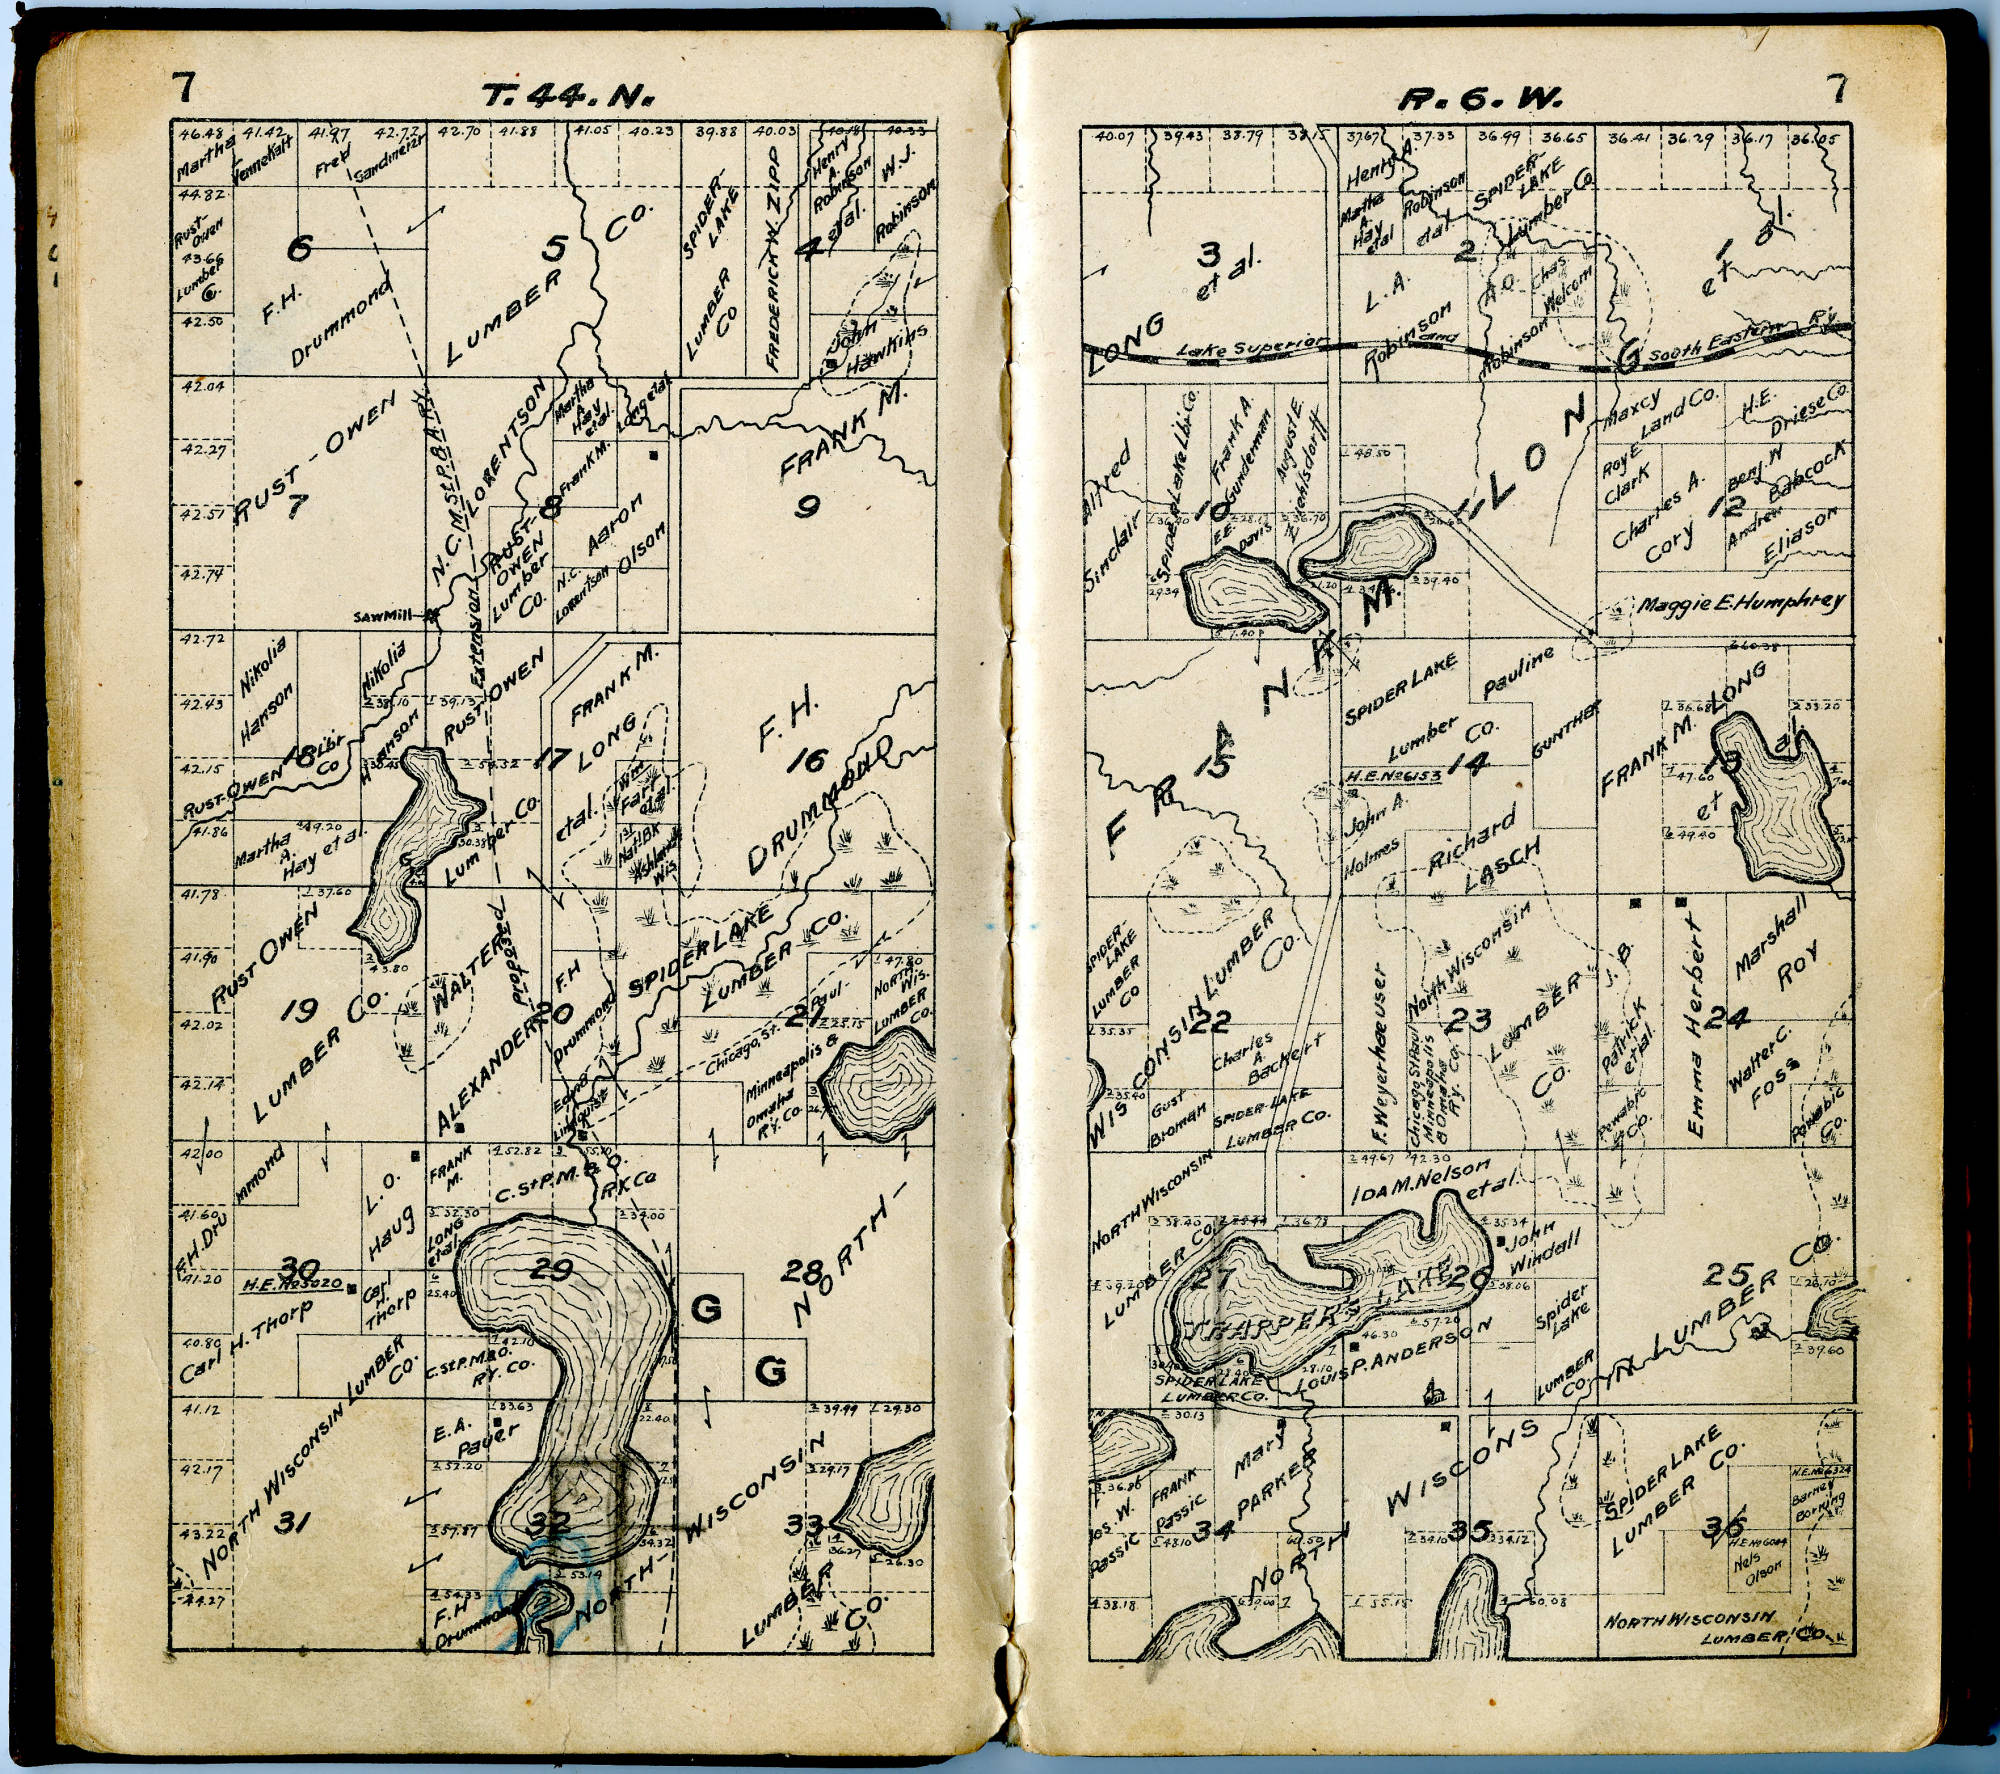 7
T. 44. N.
46.48 41.42 41.97 42.72 42.70 41.88 41.05 40.23 39.88 40.03 40.18 40.33
Martha
Fred
44.82
Rust-
Owen
43.66
Lumber
Co.
42.50
6
F.H.
Drummond
5
LUMBER
CO.
SPIDER-
LAKE
LUMBER
CO
FREDERICK W. ZIPP
Henry
A.
Robinson
etal.
W.J.
Robinson
4
John
Hawkins
42.04
42.27
42.51
42.74
RUST-OWEN
7
N.C.
LORENTSON
M. St P. & A. Ry.
Extension
Proposed
Martha
A.
Hay
etal.
Long etal.
Frank M.
8
RUST-
OWEN
Lumber
Co.
Aaron
Olson
N.C.
Lorentson
FRANK M.
9
SAWMILL
42.72
42.43
42.15
41.86
Nikolia
Hanson
Nikolia
Hanson
38.10
39.13
18
RUST-OWEN Lbr
Co
Martha
A.
Hay et al.
49.20
RUST OWEN
Lumber Co.
17
30.38
FRANK M.
LONG
etal.
Wm
Farr
etal.
1st
Nat'l BK
Ashland
Wis
F.H.
16
DRUMMOND
G
41.78
41.90
42.02
42.14
37.60
43.80
RUST OWEN
19
LUMBER CO.
WALTER
ALEXANDER
20
F.H
Drummond
Edna
Lindquist
SPIDER LAKE
LUMBER CO.
21
47.80
NORTH
WIS.
LUMBER
CO.
25.15
Chicago, St. Paul-
Minneapolis &
Omaha
R'y. Co.
42.00
41.60
41.20
40.80
F.H. Drummond
30
H.E. No 5020
Carl H. Thorp
L.O.
Haug
Carl
H.
Thorp
NORTH WISCONSIN LUMBER
CO.
FRANK
M.
LONG
etal.
52.82
C. St P. M. & O.
RY. Co
32.50
34.00
29
25.40
42.10
C. St P. M. & O.
RY. CO.
28
NORTH-
G
G
41.12
42.17
43.22
44.27
31
E.A.
Pauer
33.63
52.20
57.87
54.33
F.H
Drummond
32
22.40
34.32
53.14
NORTH-
WISCONSIN
33
LUMBER
CO.
39.99
29.30
29.17
36.27
26.30
R. 6. W.
7
40.07 39.43 38.79 38.15 37.67 37.33 36.99 36.65 36.41 36.29 36.17 36.05
3
et al.
LONG
Henry A.
Robinson
etal.
Martha
A.
Hay
etal
SPIDER-
LAKE
Lumber Co
2
L.A.
Robinson
A.O.
Robinson
Chas.
Welcom
1
et al.
Lake Superior and South Eastern Ry
G
Alfred
Sinclair
SPIDER Lake Lbr. Co.
Frank A.
Gunderman
August E.
Ziehlsdorff
10
E.E.
Davis
29.34
48.50
39.40
LON
Maxcy
Land Co.
H.E.
Driese Co.
Roy E.
Clark
Charles A.
Cory
12
Benj. W
Babcock
Andrew
Eliason
Maggie E. Humphrey
FRANK M.
15
SPIDER LAKE
Lumber
Co.
Pauline
GUNTHER
H.E. No 6153
14
John A.
Holmes
Richard
LASCH
60.38
36.68
33.20
47.60
49.40
FRANK M. LONG
et al.
13
SPIDER
LAKE
LUMBER
CO
35.35
35.40
WISCONSIN LUMBER
CO.
22
Charles
A.
Backert
Gust
Broman
SPIDER-LAKE
LUMBER CO.
F. Weyerhaeuser
Chicago, St Paul
Minneapolis
& Omaha
Ry. Co.
North Wisconsin
LUMBER
CO.
23
J.B.
Patrick
etal.
Pewabic
Co.
Emma Herbert
24
Marshall
Roy
Walter C.
FOSS
Pewabic
Co.
NORTH WISCONSIN
LUMBER CO.
38.40
36.73
27
THAPPER'S LAKE
30.40
SPIDER LAKE
LUMBER CO.
49.67
42.30
IDA M. Nelson
etal.
35.34
26
John
Windall
38.06
57.20
46.30
28.10
LOUIS P. ANDERSON
Spider
Lake
LUMBER
CO.
25
26.70
39.60
IN LUMBER CO.
30.13
36.86
Jos. W.
Passic
FRANK
Passic
48.10
38.18
34
Mary
PARKER
60.50
39.00
NORTH
WISCONS
35
34.10
34.12
35.15
50.08
SPIDER LAKE
LUMBER CO.
36
H.E. No 6324
Barney
Borning
H.E. No 6004
Nels
Olson
NORTH WISCONSIN
LUMBER CO.